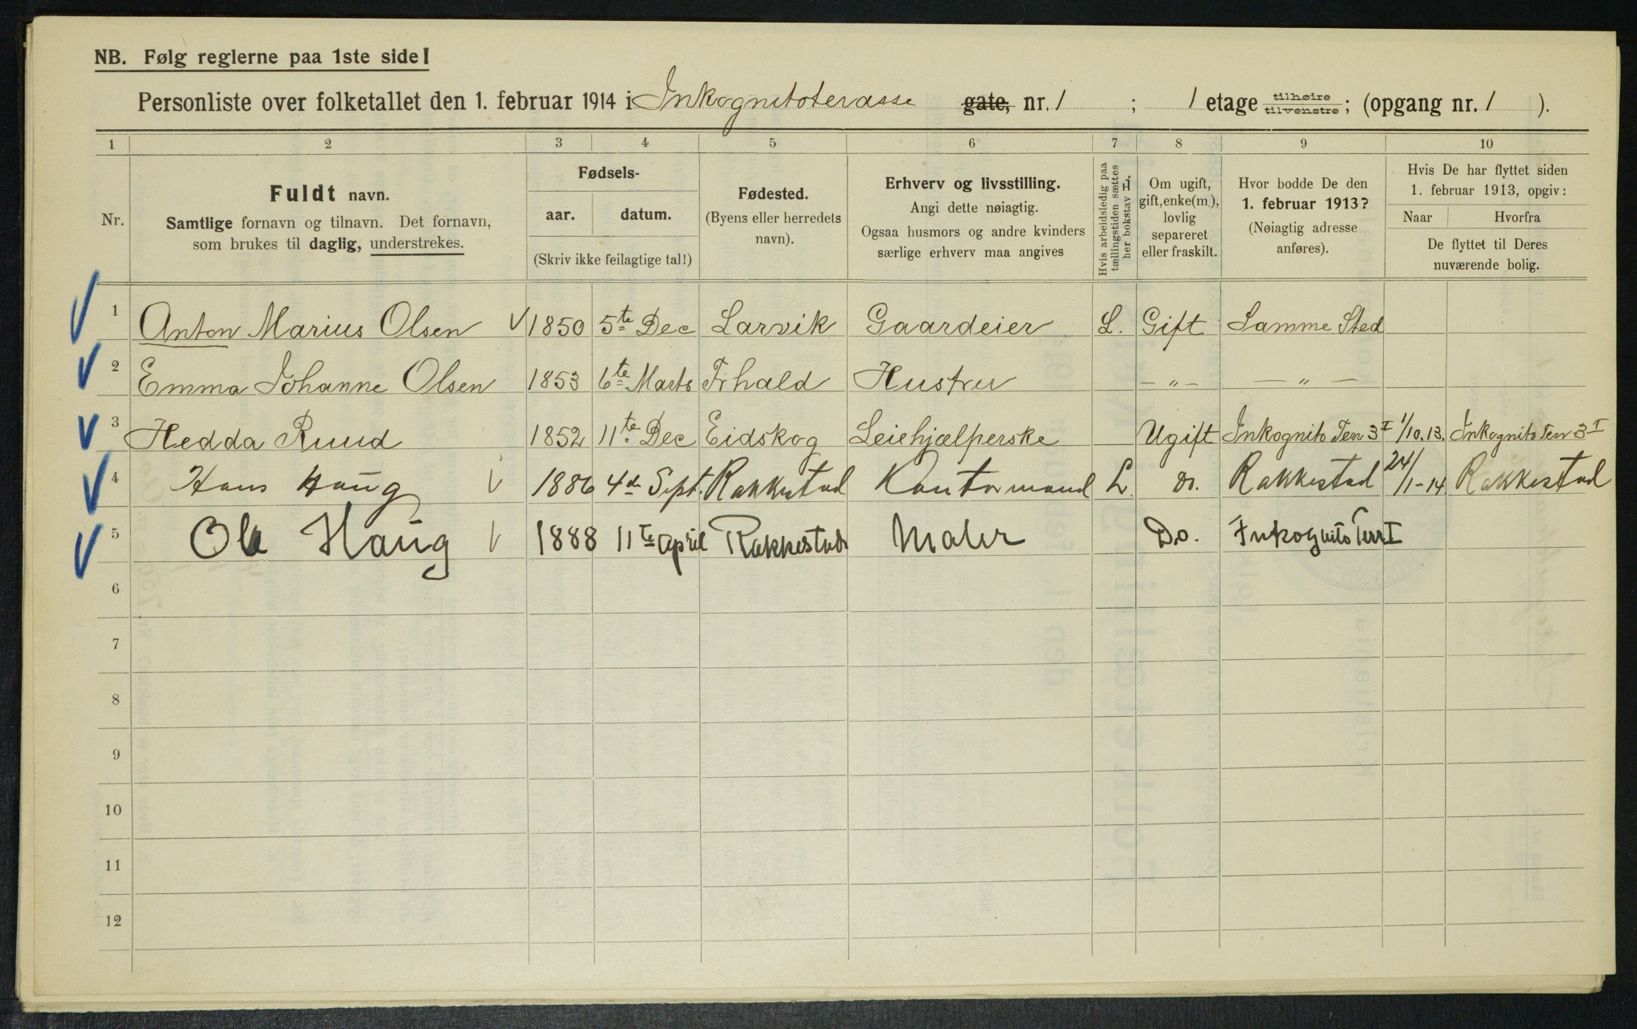 NB. Følg reglerne paa 1ste side!
Personliste over folketallet den 1. februar 1914 i Inkognitoterasse gate, nr. 1 ; 1 etage tilhøire tilvenstre ; (opgang nr. 1 ).
1 2 3 4 5 6 7 8 9 10
Nr.
Fuldt navn.
Samtlige fornavn og tilnavn. Det fornavn,
som brukes til daglig, understrekes.
Fødsels-
aar. datum.
(Skriv ikke feilagtige tal!)
Fødested.
(Byens eller herredets
navn).
Erhverv og livsstilling.
Angi dette nøiagtig.
Ogsaa husmors og andre kvinders
særlige erhverv maa angives
Hvis arbeidsledig paa
tællingstiden sættes
her bokstav L.
Om ugift,
gift, enke(m.),
lovlig
separeret
eller fraskilt.
Hvor bodde De den
1. februar 1913?
(Nøiagtig adresse
anføres).
Hvis De har flyttet siden
1. februar 1913, opgiv:
Naar Hvorfra
De flyttet til Deres
nuværende bolig.
1 Anton Marius Olsen 1850 5te Dec Larvik Gaardeier L. Gift Samme Sted
2 Emma Johanne Olsen 1853 6te Marts Frhald Hustru — „ — — „ —
3 Hedda Ruud 1852 11te Dec Eidskog Leiehjælperske Ugift Inkognito Terr 3 I 1/10.13. Inkognito Terr 3 I
4 Hans Haug 1886 4de Sept. Rakkestad Kontormand L. Do. Rakkestad 24/1-14 Rakkestad
5 Ole Haug 1888 11te april Rakkestad Maler Do. Inkognito Terr I
6
7
8
9
10
11
12